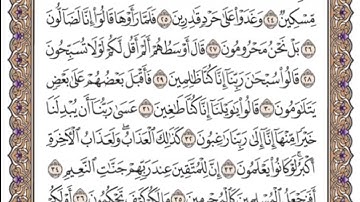 مِّسْكِينٌ ٢٤ وَغَدَوْا۟ عَلَىٰ حَرْدٍ قَٰدِرِينَ ٢٥ فَلَمَّا رَأَوْهَا قَالُوٓا۟ إِنَّا لَضَآلُّونَ
٢٦ بَلْ نَحْنُ مَحْرُومُونَ ٢٧ قَالَ أَوْسَطُهُمْ أَلَمْ أَقُل لَّكُمْ لَوْلَا تُسَبِّحُونَ
٢٨ قَالُوا۟ سُبْحَٰنَ رَبِّنَآ إِنَّا كُنَّا ظَٰلِمِينَ ٢٩ فَأَقْبَلَ بَعْضُهُمْ عَلَىٰ بَعْضٍ
يَتَلَٰوَمُونَ ٣٠ قَالُوا۟ يَٰوَيْلَنَآ إِنَّا كُنَّا طَٰغِينَ ٣١ عَسَىٰ رَبُّنَآ أَن يُبْدِلَنَا
خَيْرًا مِّنْهَآ إِنَّآ إِلَىٰ رَبِّنَا رَٰغِبُونَ ٣٢ كَذَٰلِكَ ٱلْعَذَابُ ۖ وَلَعَذَابُ ٱلْـَٔاخِرَةِ
أَكْبَرُ ۚ لَوْ كَانُوا۟ يَعْلَمُونَ ٣٣ إِنَّ لِلْمُتَّقِينَ عِندَ رَبِّهِمْ جَنَّٰتِ ٱلنَّعِيمِ ٣٤
أَفَنَجْعَلُ ٱلْمُسْلِمِينَ كَٱلْمُجْرِمِينَ ٣٥ مَا لَكُمْ كَيْفَ تَحْكُمُونَ ٣٦ أَمْ لَكُمْ